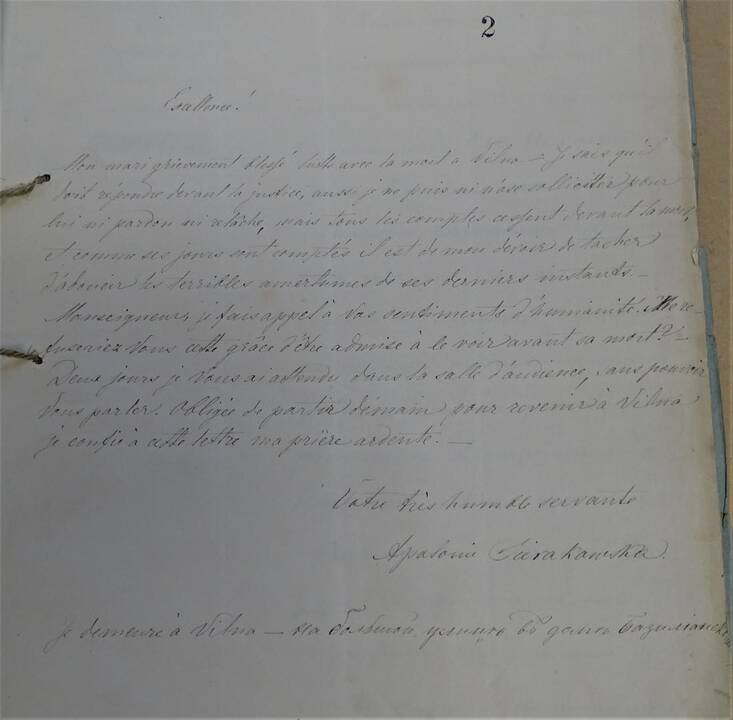 2
Excellence!
Mon mari grievement blessé lutte avec la mort a Vilna — Je sais qu'il
doit répondre devant la justice, aussi je ne puis ni n'ose solliciter pour
lui ni pardon ni relâche, mais tous les comptes cessent devant la mort,
et comme ses jours sont comptés il est de mon dévoir de tacher
d'adoucir les terribles amertumes de ses derniers instants. —
Monseigneur, je fais appel à vos sentiments d'humanité. Me re-
fuseriez Vous cette grâce d'être admise à le voir avant sa mort? —
Deux jours je Vous ai attendu dans la salle d'audience, sans pouvoir
Vous parler. Obligée de partir demain pour revenir à Vilna
je confie à cette lettre ma prière ardente. —
Votre très humble servante
Apalonie Sierakowska.
Je demeure à Vilna — на Большой улицѣ въ домѣ